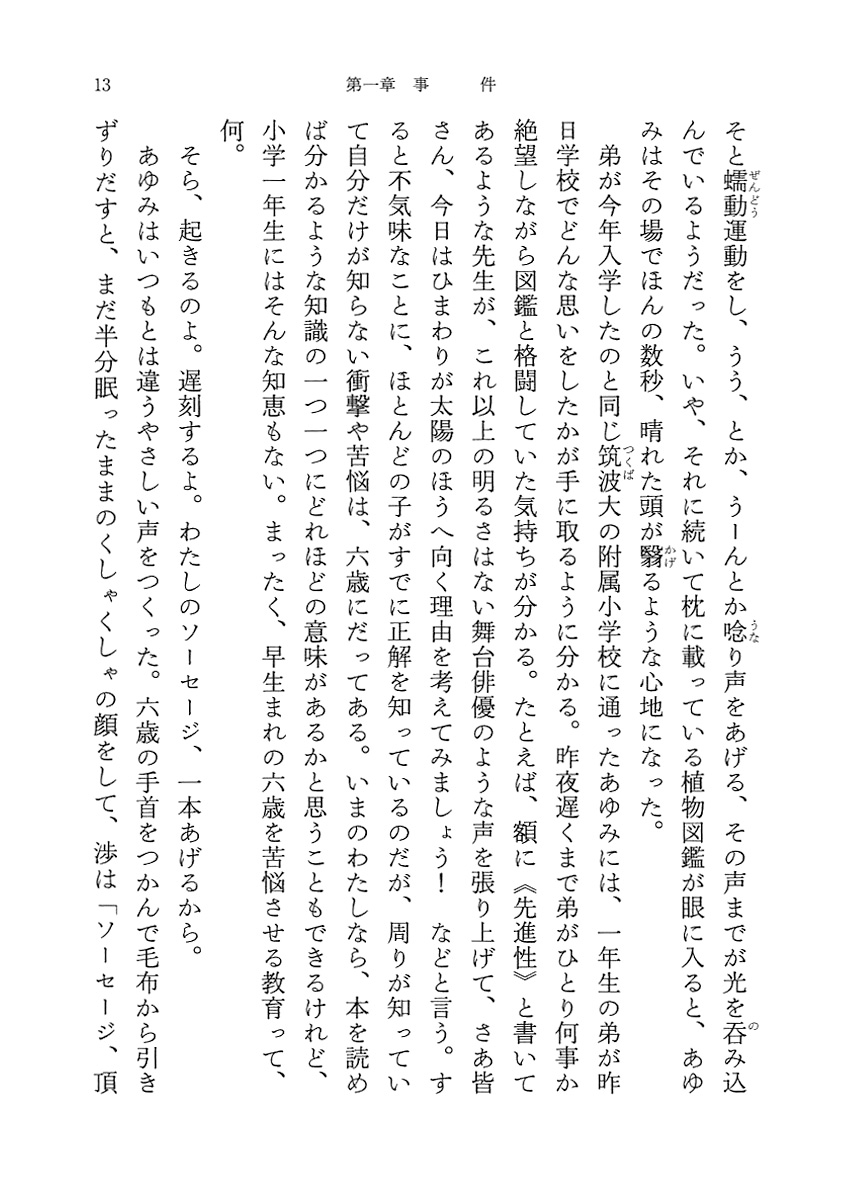 13
第一章 事 件
そと蠕動運動をし、うう、とか、うーんとか唸り声をあげる、その声までが光を呑み込
んでいるようだった。いや、それに続いて枕に載っている植物図鑑が眼に入ると、あゆ
みはその場でほんの数秒、晴れた頭が翳るような心地になった。
　弟が今年入学したのと同じ筑波大の附属小学校に通ったあゆみには、一年生の弟が昨
日学校でどんな思いをしたかが手に取るように分かる。昨夜遅くまで弟がひとり何事か
絶望しながら図鑑と格闘していた気持ちが分かる。たとえば、額に《先進性》と書いて
あるような先生が、これ以上の明るさはない舞台俳優のような声を張り上げて、さあ皆
さん、今日はひまわりが太陽のほうへ向く理由を考えてみましょう！　などと言う。す
ると不気味なことに、ほとんどの子がすでに正解を知っているのだが、周りが知ってい
て自分だけが知らない衝撃や苦悩は、六歳にだってある。いまのわたしなら、本を読め
ば分かるような知識の一つ一つにどれほどの意味があるかと思うこともできるけれど、
小学一年生にはそんな知恵もない。まったく、早生まれの六歳を苦悩させる教育って、
何。
　そら、起きるのよ。遅刻するよ。わたしのソーセージ、一本あげるから。
　あゆみはいつもとは違うやさしい声をつくった。六歳の手首をつかんで毛布から引き
ずりだすと、まだ半分眠ったままのくしゃくしゃの顔をして、渉は「ソーセージ、頂
ぜんどう
うな
の
かげ
つくば